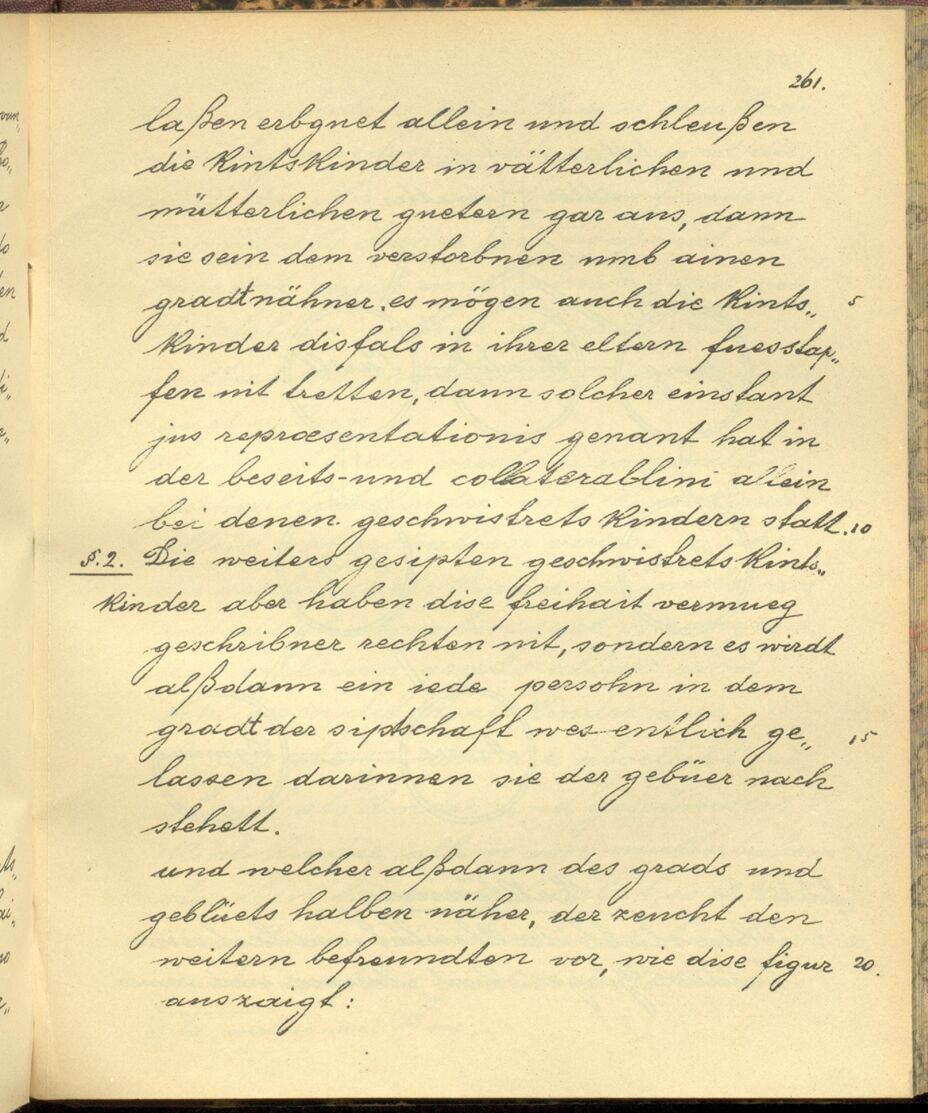 261.
laßen erbgnet allein und schleußen
die KintsKinder in vätterlichen und
mütterlichen gnetern gar aus, dann
sie sein dem verstorbnen umb ainen
gradt nähner. es mögen auch die Kints„ 5
Kinder disfals in ihrer eltern fuesstap„
fen nit tretten, dann solcher einstant
jus repræsentationis genant hat in
der beseits-und collaterallini allein
bei denen geschwistrets Kindern statt. 10
§. 2. Die weiters gesipten geschwistrets Kints„
Kinder aber haben dise freihait vermueg
geschribner rechten nit, sondern es wirdt
alßdann ein iede persohn in dem
gradt der sipschaft wesentlich ge„ 15
lassen darinnen sie der gebüer nach
stehett.
und welcher alßdann des grads und
geblüets halben näher, der zeucht den
weitern befreundten vor, wie dise figur 20.
auszaigt: